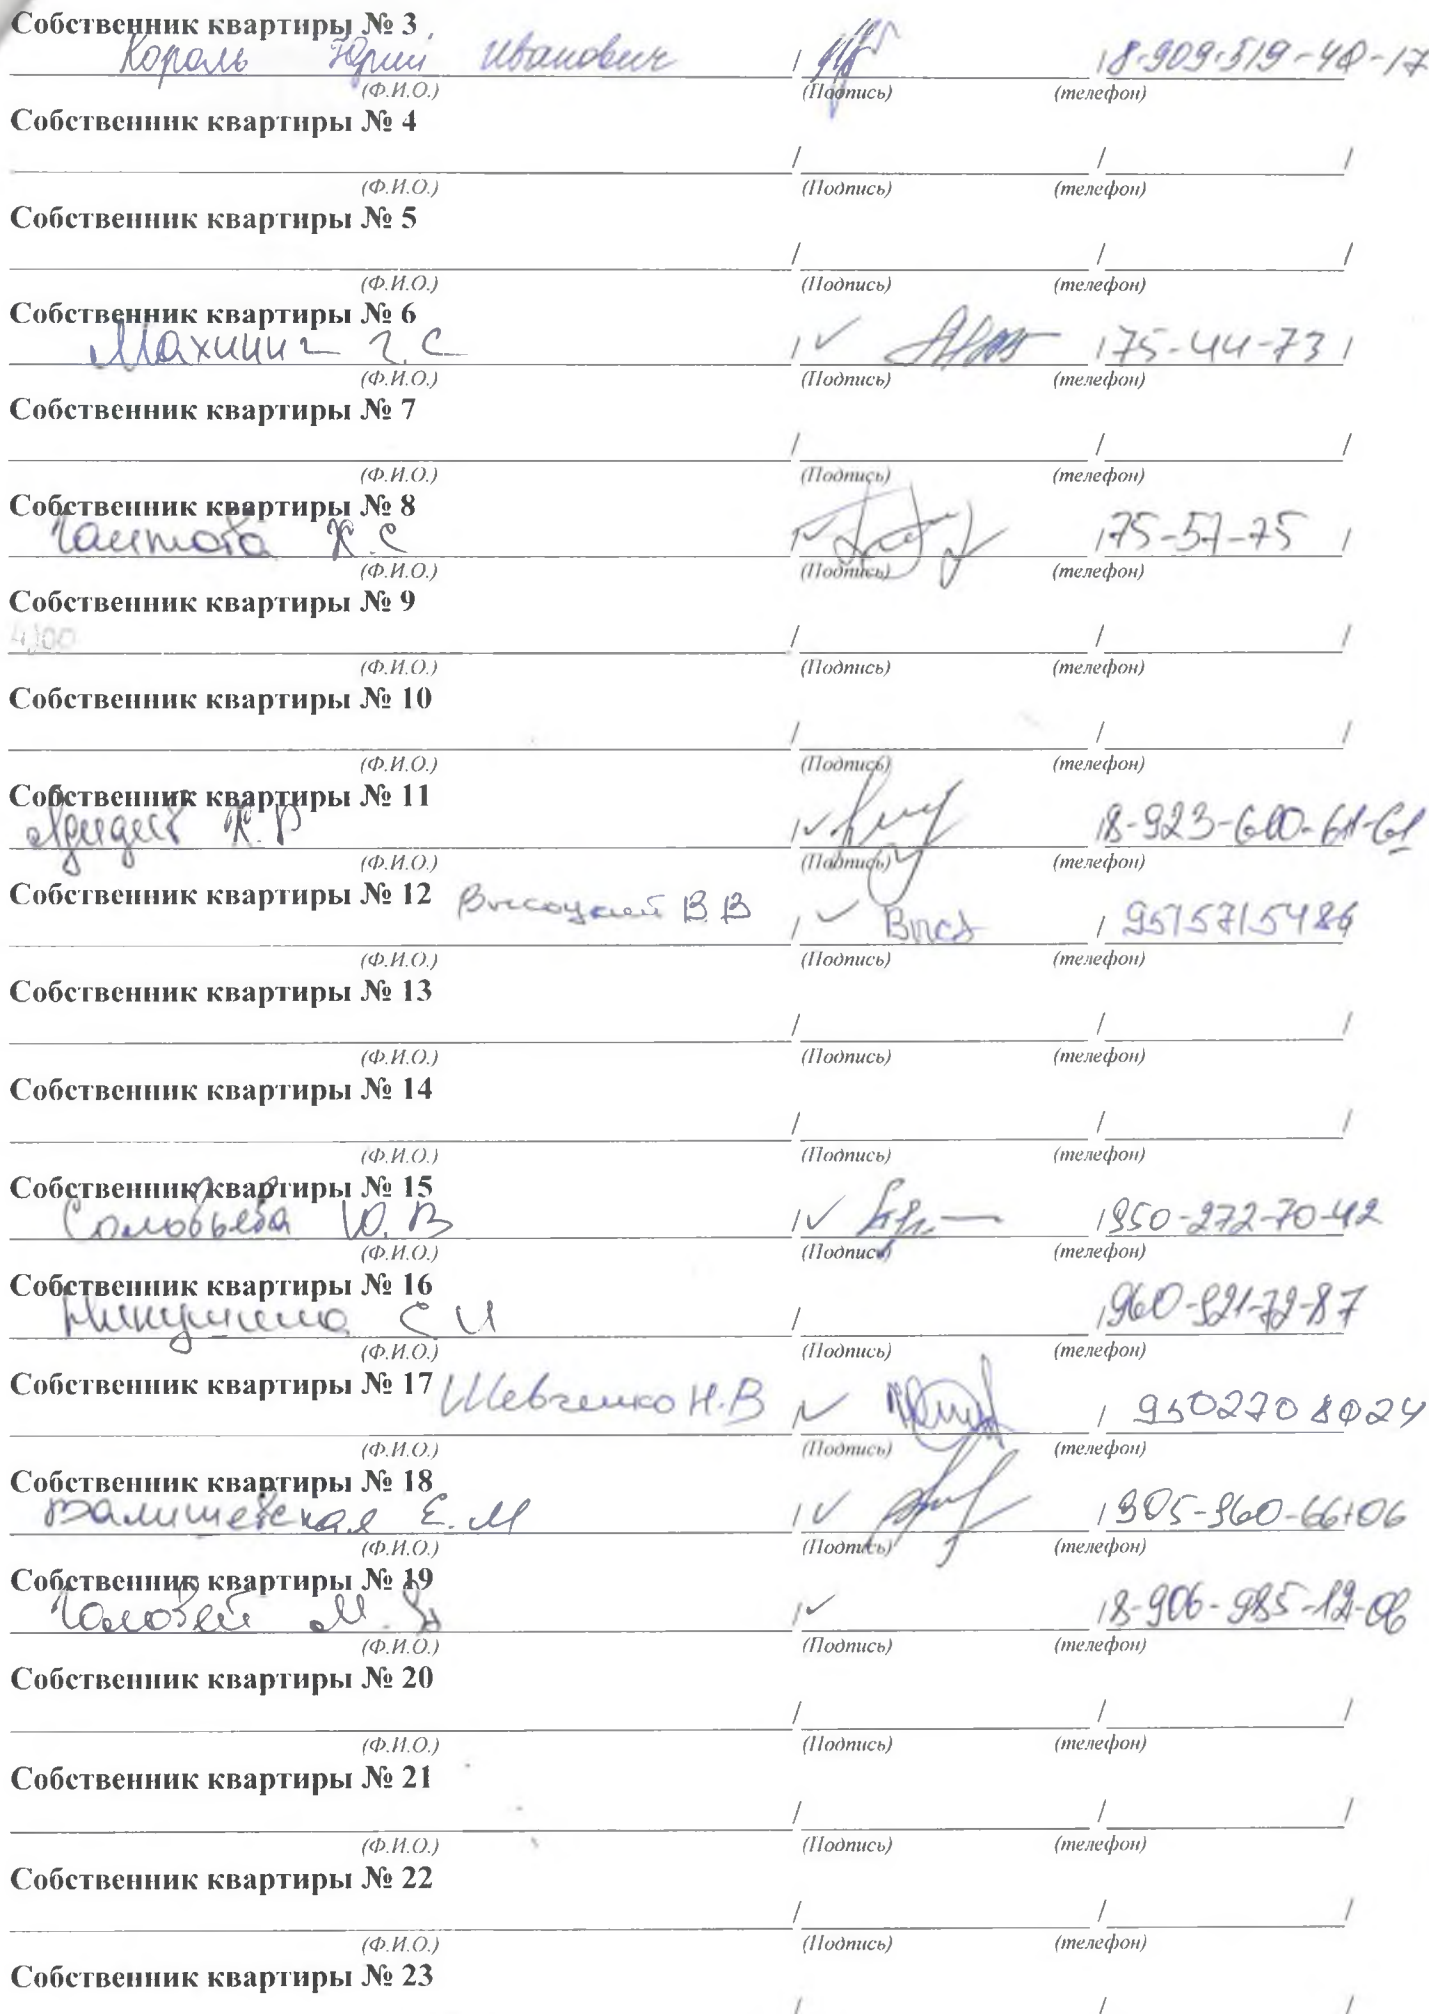 Собственник квартиры № 3
Король Юрий Иванович / / 8-909-519-40-17
(Ф.И.О.) (Подпись) (телефон)
Собственник квартиры № 4
/ / /
(Ф.И.О.) (Подпись) (телефон)
Собственник квартиры № 5
/ / /
(Ф.И.О.) (Подпись) (телефон)
Собственник квартиры № 6
Г.С / ✓ / 75-44-73 /
(Ф.И.О.) (Подпись) (телефон)
Собственник квартиры № 7
/ / /
(Ф.И.О.) (Подпись) (телефон)
Собственник квартиры № 8
К.С / ✓ / 75-57-75 /
(Ф.И.О.) (Подпись) (телефон)
Собственник квартиры № 9
/ / /
(Ф.И.О.) (Подпись) (телефон)
Собственник квартиры № 10
/ / /
(Ф.И.О.) (Подпись) (телефон)
Собственник квартиры № 11
/ ✓ /
(Ф.И.О.) (Подпись) (телефон)
Собственник квартиры № 12 Высоцкий В.В / ✓ Выс / 9515715486
(Ф.И.О.) (Подпись) (телефон)
Собственник квартиры № 13
/ / /
(Ф.И.О.) (Подпись) (телефон)
Собственник квартиры № 14
/ / /
(Ф.И.О.) (Подпись) (телефон)
Собственник квартиры № 15
Соловьева Ю.В / ✓ / 950-272-70-42
(Ф.И.О.) (Подпись) (телефон)
Собственник квартиры № 16
С И / / 960-921-72-87
(Ф.И.О.) (Подпись) (телефон)
Собственник квартиры № 17 Шевченко Н.В / ✓ / 9502708024
(Ф.И.О.) (Подпись) (телефон)
Собственник квартиры № 18
Валишевская Е.М / ✓ / 905-960-66-06
(Ф.И.О.) (Подпись) (телефон)
Собственник квартиры № 19
Головей М. / ✓ / 8-906-985-12-06
(Ф.И.О.) (Подпись) (телефон)
Собственник квартиры № 20
/ / /
(Ф.И.О.) (Подпись) (телефон)
Собственник квартиры № 21
/ / /
(Ф.И.О.) (Подпись) (телефон)
Собственник квартиры № 22
/ / /
(Ф.И.О.) (Подпись) (телефон)
Собственник квартиры № 23
/ / /